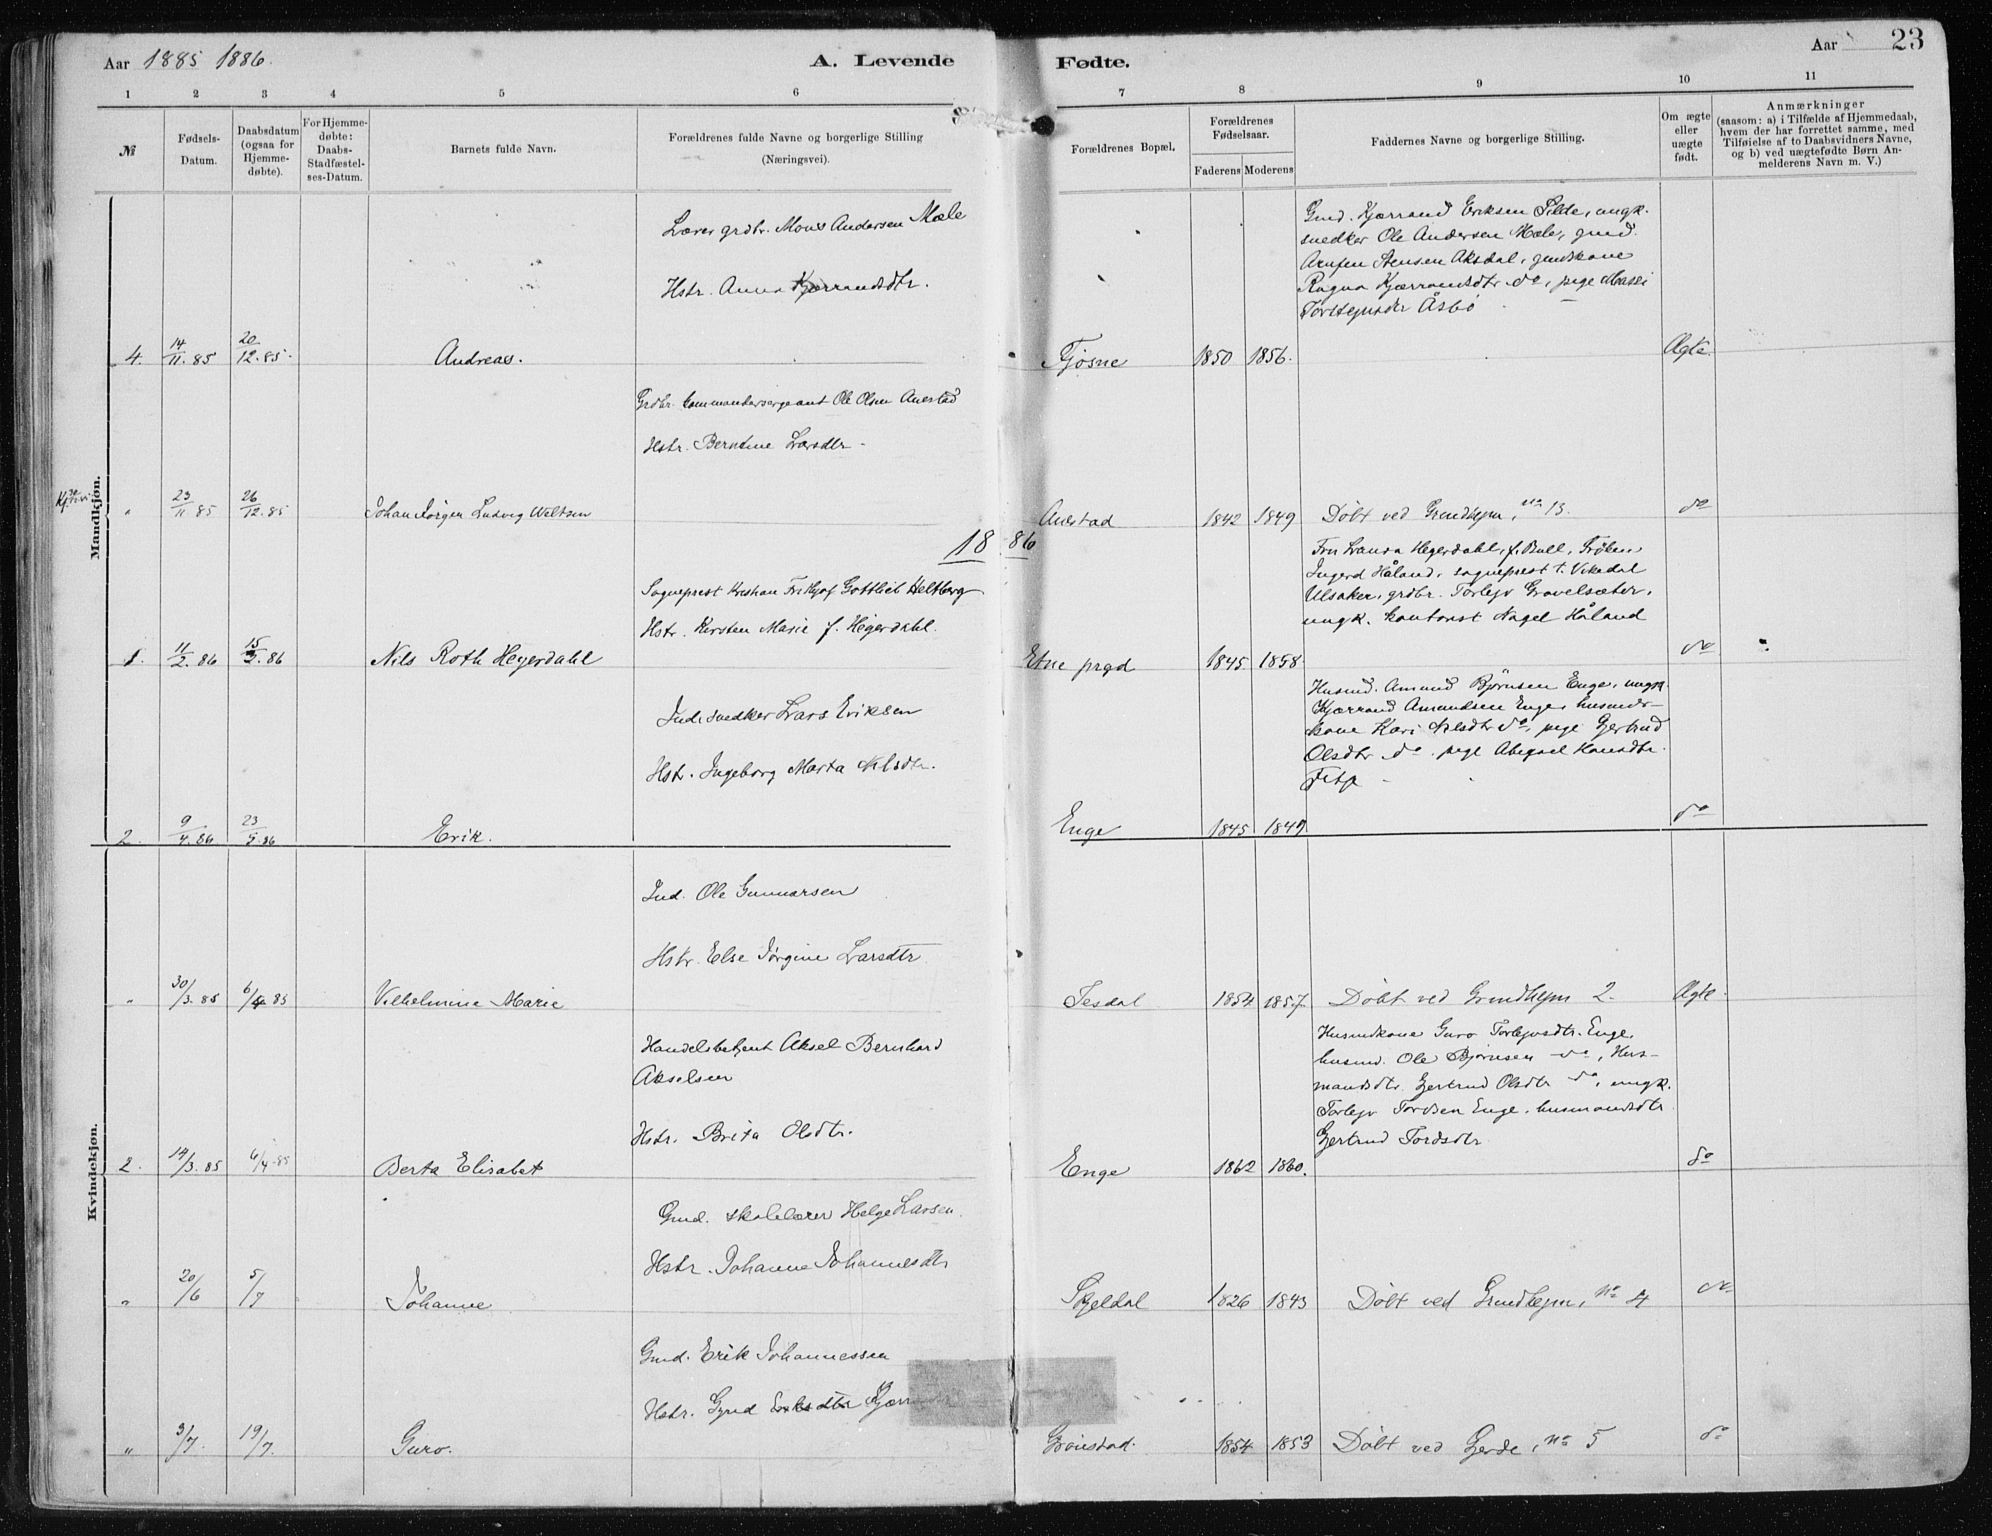 Aar 1885 1886.
A. Levende Fødte.
Aar
23
1 2 3 4 5 6 7 8 9 10 11
№
Fødsels-Datum.
Daabsdatum (ogsaa for Hjemme-døbte).
For Hjemme-døbte: Daabs-Stadfæstel-ses-Datum.
Barnets fulde Navn.
Forældrenes fulde Navne og borgerlige Stilling (Næringsvei).
Forældrenes Bopæl.
Forældrenes Fødselsaar.
Faderens Moderens
Faddernes Navne og borgerlige Stilling.
Om ægte eller uægte født.
Anmærkninger
(saasom: a) i Tilfælde af Hjemmedaab,
hvem der har forrettet samme, med
Tilføielse af to Daabsvidners Navne,
og b) ved uægtefødte Børn An-
melderens Navn m. V.)
Mandkjøn.
Lærer grdbr. Mons Andersen Mæle
Hstr. Anna Kjærrandsdtr.
Gmd. Kjærrand Eriksen Silde, ungk.
snedker Ole Andersen Mæle, gmd.
Stensen Aksdal, gmdskone
Ragna Kjærrandsdtr do, pige
Torstejnsdtr Åsbö
4. 14/11.85 20/12.85. Andreas. Tjösne 1850 1856. Ægte.
Grdbr. Commandersergeant Ole Olsen Anestad
Hstr. Berntine Larsdtr.
" 23/11.85 26/12.85 Johan Jörgen Ludvig Anestad 1842 1849 Döbt ved Grindhejm, no 13. do
1886
Sogneprest Kristian Frithjof Gottlieb Heltberg
Hstr. Kirsten Marie f. Hegerdahl.
Fru Laura Hegerdahl, f. Bull, Fröken
Ingerd Håland, sogneprest t. Vikedal
Ulsaker, grdbr. Torlejv Gravelsæter,
ungk. kontorist Nagel Håland
1. 11/2.86 15/5.86 Nils Roth Heyerdahl Etne prgd 1845 1858 do
Ind. snedker Lars Eriksen
Hstr. Ingeborg Marta Nilsdtr.
Husmd. Amund Björnsen Enge, ungk.
Kjærrand Amundsen Enge, husmds-
kone Kari Nilsdtr do, pige Gjertrud
Olsdtr do, pige Abigael Hansdtr.
2. 9/4.86 23/5.86 Erik. Enge 1845 1849. do
Kvindekjøn.
Ind. Ole Gunnarsen
Hstr. Else Jörgine Larsdtr.
" 30/3.85 6/4.85 Vilhelmine Marie Tesdal 1854 1857. Döbt ved Grindhejm 2. Ægte.
Handelsbetjent Aksel Bernhard
Akselsen
Hstr. Brita Olsdtr.
Husmdkone Guro Torlejvsdtr. Enge,
husmd. Ole Björnsen do, Hus-
mandsdtr. Gjertrud Olsdtr do, ungk.
Torlejv Tordsen Enge, husmandsdtr
Gjertrud Tordsdtr.
2. 14/3.85 6/4.85 Berta Elisabet Enge 1862 1860. do
Gmd. skolelærer Helge Larsen.
Hstr. Johanne Johannesdtr
" 20/6 5/7 Johanne Skjeldal 1826 1843 Döbt ved Grindhejm, no 4 do
Gmd. Erik Johannessen
Hstr. Gyrid
" 3/7. 19/7. Guro. Grönstad. 1854 1853 Döbt ved Gjerde, no 5 do